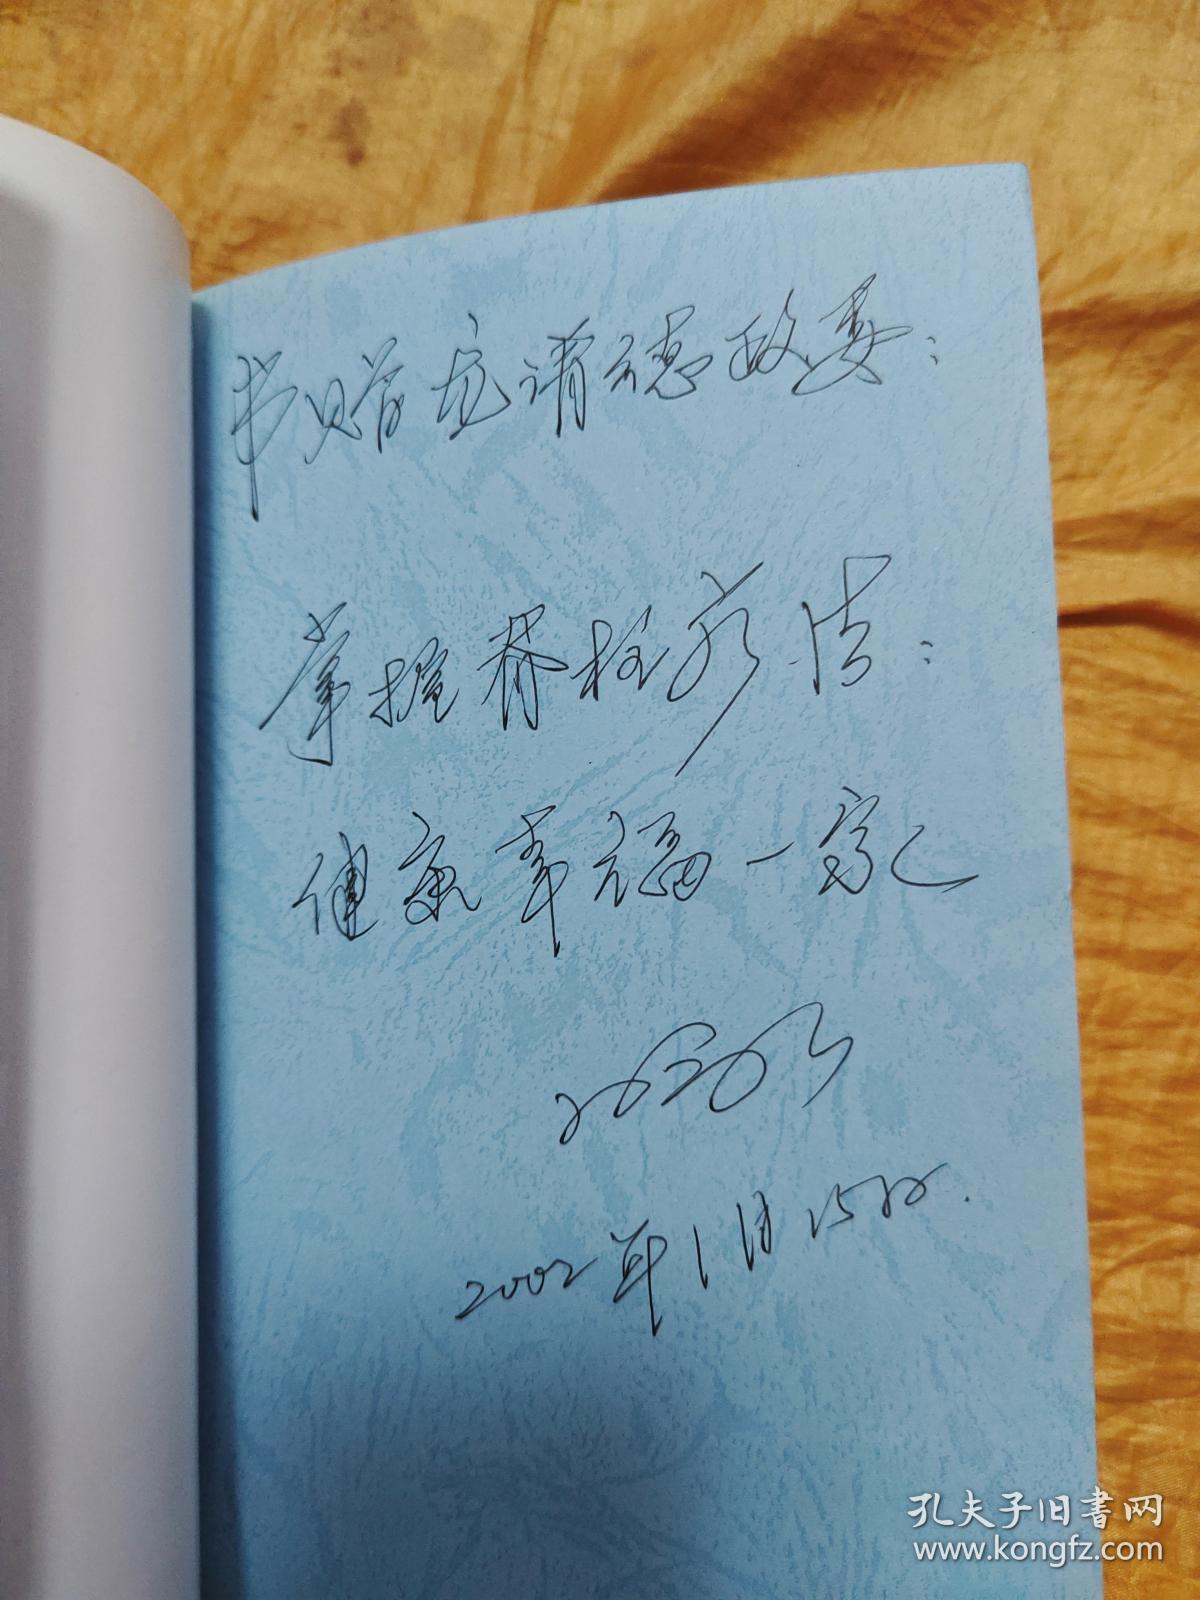 书赠 清德政委：
掌握脊柱疗法：
健康幸福一家
2002年1月15日.
孔夫子旧书网
www.kongfz.com